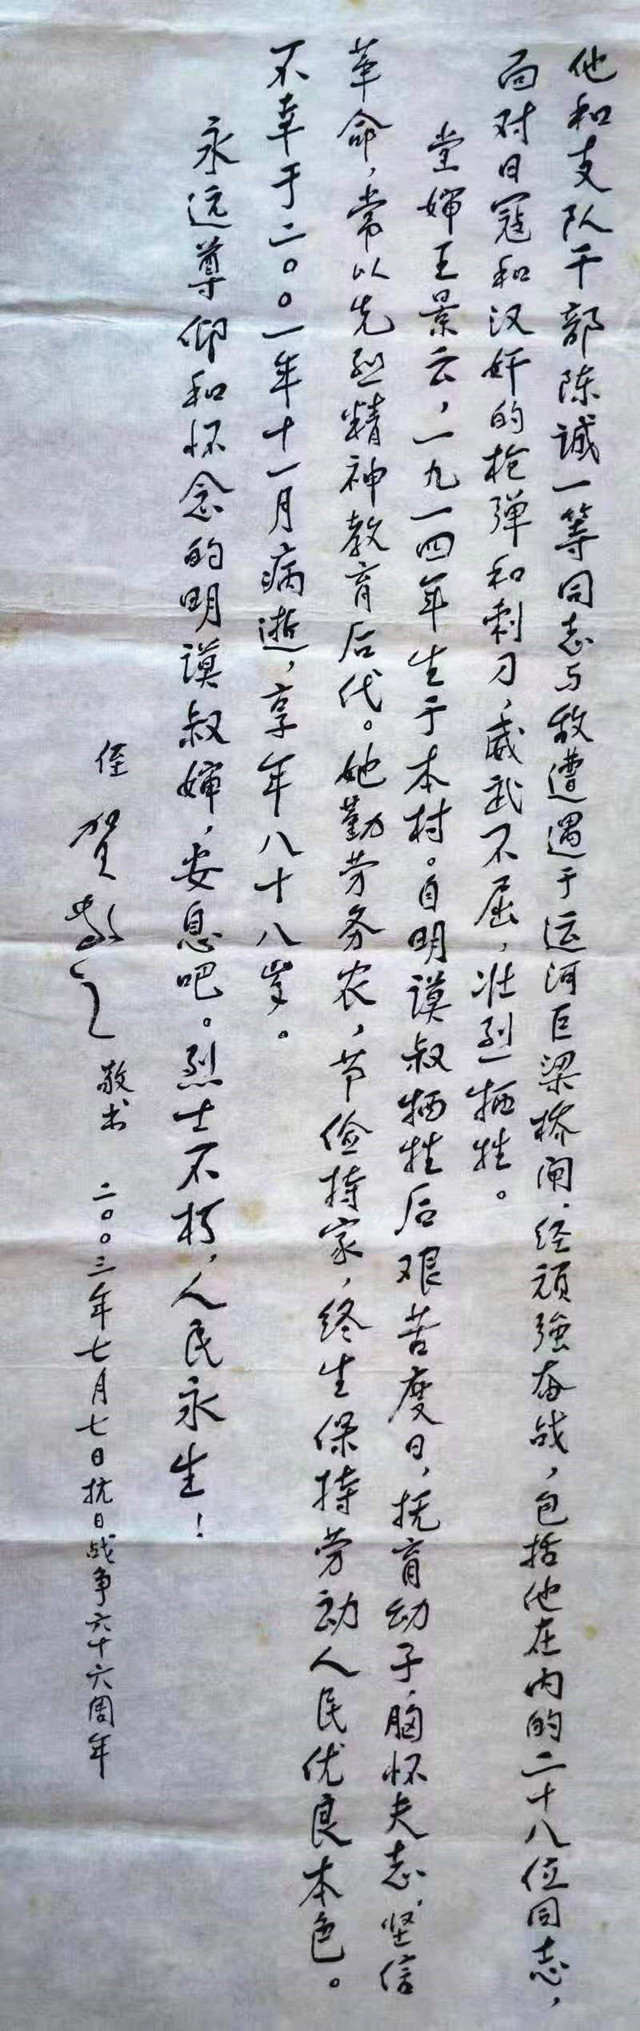 他和支队干部陈诚一等同志与敌遭遇于运河巨梁桥闸.经顽強奋战，包括他在内的二十八位同志，
面对日寇和汉奸的枪弹和刺刀，威武不屈，壮烈牺牲。
堂婶王景云，一九一四年生于本村。自明谟叔牺牲后艰苦度日，抚育幼子，胸怀夫志，坚信
革命，常以先烈精神教育后代。她勤劳务农，节俭持家，终生保持劳动人民优良本色。
不幸于二〇〇一年十一月病逝，享年八十八岁。
永远尊仰和怀念的明谟叔婶，安息吧。烈士不朽，人民永生！
侄 贺敬之 敬书 二〇〇三年七月七日抗日战争六十六周年